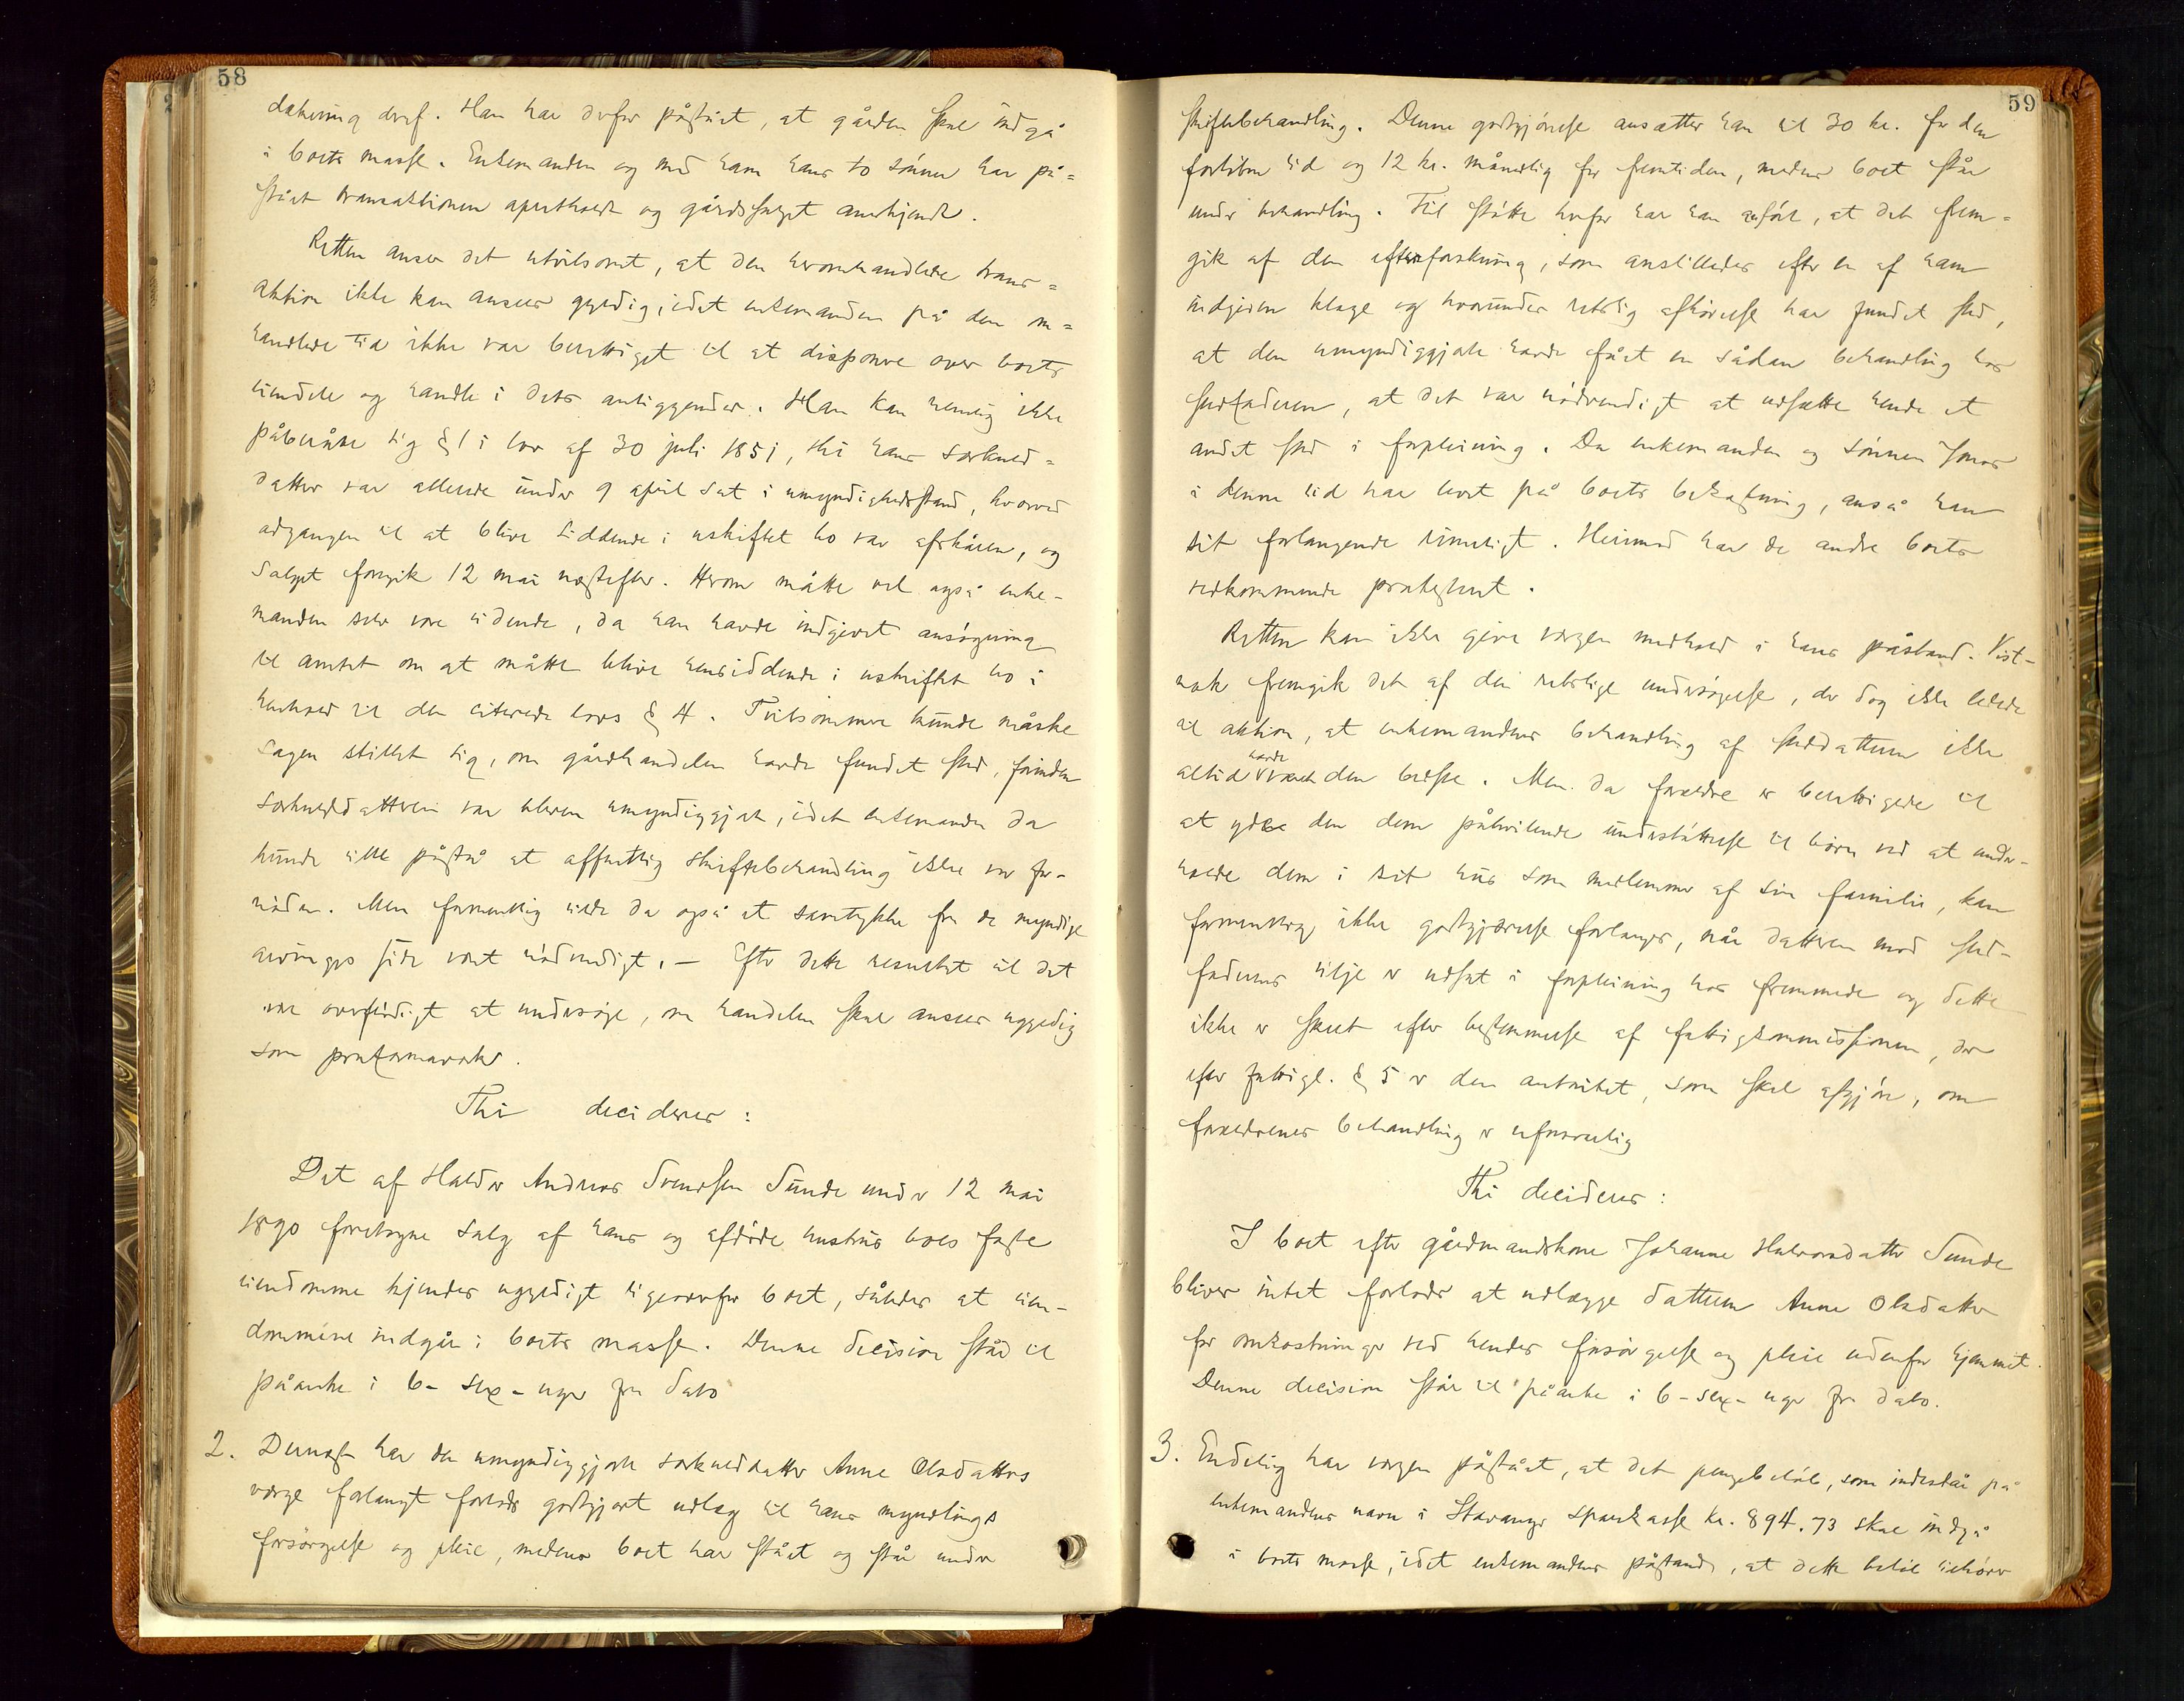 58
dækning deraf. Han har derfor påstået, at gården skal indgå
i boets masse. Enkemanden og med ham hans to sønner har på=
stået transaktionen opretholdt og gårdsalget anerkjendt.
Retten anser det utvilsomt, at den heromhandlede trans=
aktion ikke kan ansees gyldig, idet enkemanden på den om=
handlede tid ikke var berettiget til at disponere over boets
eiendele og handle i dets anliggender. Han kan nemlig ikke
påberåbe sig § 1 i lov af 30 juli 1851, thi hans særkuld=
datter var allerede under 9 april sat i umyndighedsstand, hvorved
adgangen til at blive siddende i uskiftet bo var afskåren, og
salget foregik 12 mai næstefter. Herom måtte vel også enke-
manden selv være vidende, da han havde indgivet ansøgning
til amtet om at måtte blive hensiddende i uskiftet bo i
henhold til den citerede lovs § 4. Tvilsommere kunde måske
sagen stillet sig, om gårdhandelen havde fundet sted, førinden
særkulddatteren var bleven umyndiggjort, idet enkemanden da
kunde ville påstå at offentlig skiftebehandling ikke var for-
nøden. Men formentlig vilde da også et samtykke fra de myndige
arvingers side været nødvendigt. — Efter dette resultat vil det
være overflødigt at undersøge, om handelen skal ansees ugyldig
som proformaværk.
Thi decideres:
Det af Haldor Andreas Svendsen Sunde under 12 mai
1890 foretagne salg af hans og afdøde hustrus boes faste
eiendomme kjendes ugyldigt ligeoverfor boet, således at eien-
dommene indgår i boets masse. Denne decision står til
påanke i 6- sex- uger fra dato
2. Dernæst har den umyndiggjorte særkulddatter Anne Olsdatters
værge forlangt forlods godtgjort udlæg til hans myndlings
forsørgelse og pleie, medens boet har stået og står under
59
skiftebehandling. Denne godtgjørelse ansætter han til 30 kr. for den
forløbne tid og 12 kr. månedlig for fremtiden, medens boet står
under behandling. Til støtte herfor har han anført, at det frem=
gik af den efterforskning, som anstilledes efter en af ham
indgiven klage og hvorunder retslig afhørelse har fundet sted,
at den umyndiggjorte havde fået en sådan behandling hos
stedfaderen, at det var nødvendigt at udsætte hende et
andet sted i forpleining. Da enkemanden og sønnen Jonas
i denne tid har levet på boets bekostning, anså han
sit forlangende rimeligt. Herimod har de andre boets
vedkommende protesteret.
Retten kan ikke give værgen medhold i hans påstand. Vist-
nok fremgik det af den retslige undersøgelse, der dog ikke ledede
til aktion, at enkemandens behandling af steddatteren ikke
altid havde været den bedste. Men da forældre er berettigede til
at yde den dem påhvilende understøttelse til børn ved at under-
holde dem i sit hus som medlemmer af sin familie, kan
formentlig ikke godtgjørelse forlanges, når datteren mod sted-
faderens vilje er udsat i forpleining hos fremmede og dette
ikke er skeet efter bestemmelse af fattigkommissionen, der
efter fattigl. § 5 er den autoritet, som skal afgjøre, om
forældrenes behandling er uforsvarlig
Thi decideres:
I boet efter gårdmandskone Johanne Halvorsdatter Sunde
bliver intet forlods at udlægge datteren Anne Olsdatter
for omkostninger ved hendes forsørgelse og pleie udenfor hjemmet.
Denne decision står til påanke i 6- sex- uger fra dato.
3. Endelig har værgen påstået, at det pengebeløb, som indestår på
enkemandens navn i Stavanger sparekasse kr. 894.73 skal indgå
i boets masse, idet enkemandens påstand, at dette beløb tilhører